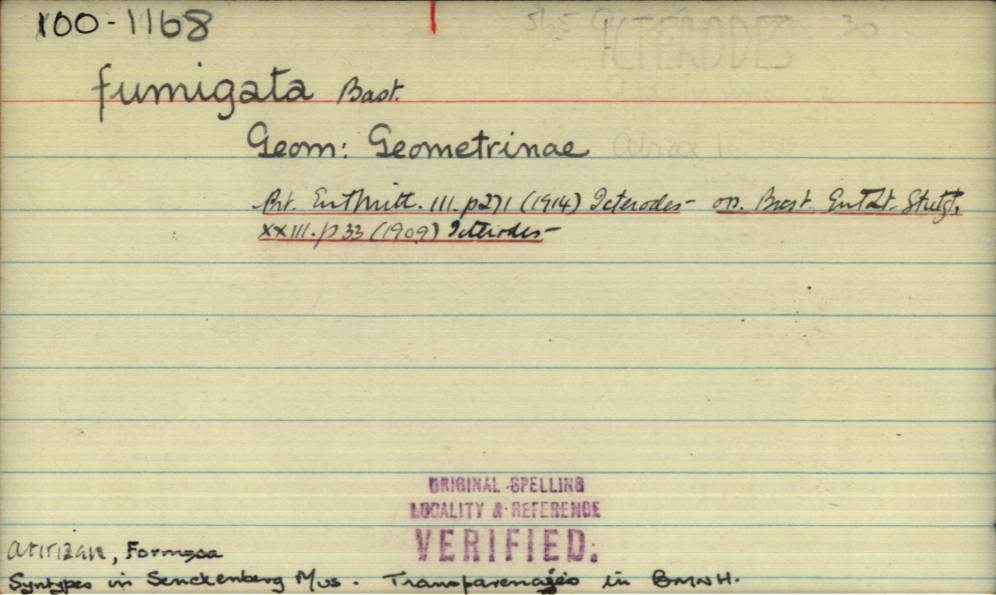 100-1168
ICTERODES 30
fumigata Bast.
Geom: Geometrinae
Ent. Mitt. III. p271 (1914) Icterodes- Bast.
XXIII. p33 (1909) Icterodes-
ORIGINAL SPELLING
LOCALITY & REFERENCE
VERIFIED.
Arizan, Formosa
Syntypes in Senckenberg Mus. Transparencies in BMNH.